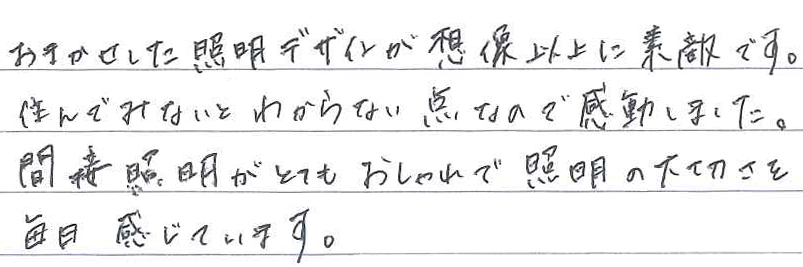 おまかせした照明デザインが想像以上に素敵です。
住んでみないとわからない点なので感動しました。
間接照明がとてもおしゃれで照明の大切さを
毎日感じています。